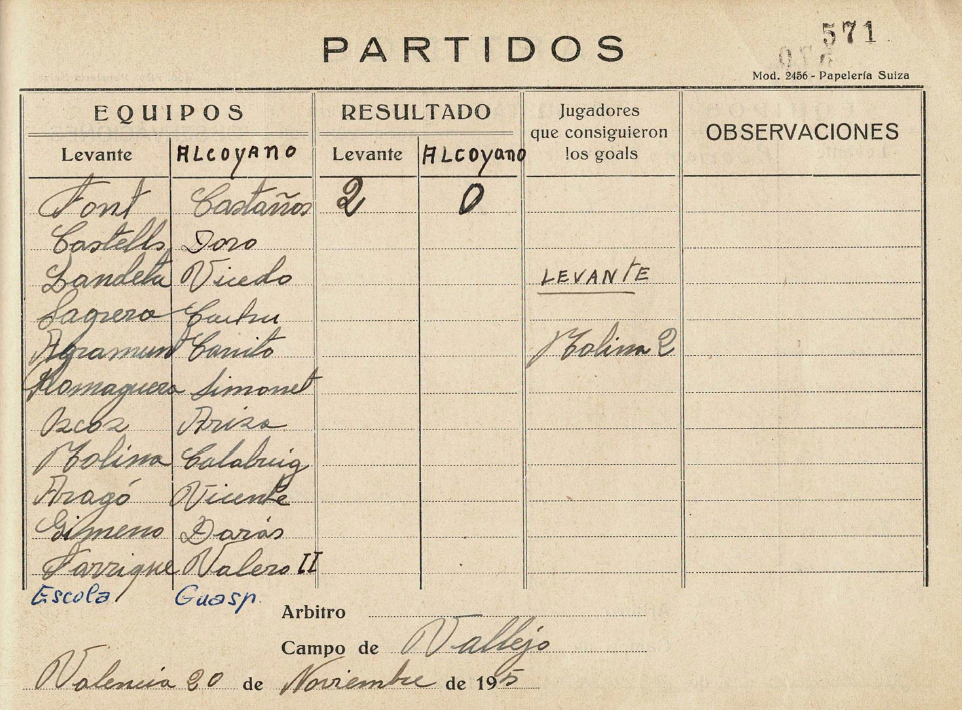 571
PARTIDOS
Mod. 2456 - Papelería Suiza
EQUIPOS RESULTADO Jugadores que consiguieron los goals OBSERVACIONES
Levante ALCOYANO Levante ALCOYANO
Font Castaños 2 0
Castells Doro
Dandeta Vicedo LEVANTE
Sagrera
Agramunt Carrito Molina 2
Romaguera Simonet
Ozcoz Ariza
Molina Calabuig
Aragó Vicente
Gimeno Darás
Farrique Valero II
Escola Guasp.
Arbitro
Campo de Vallejo
Valencia 20 de Noviembre de 195